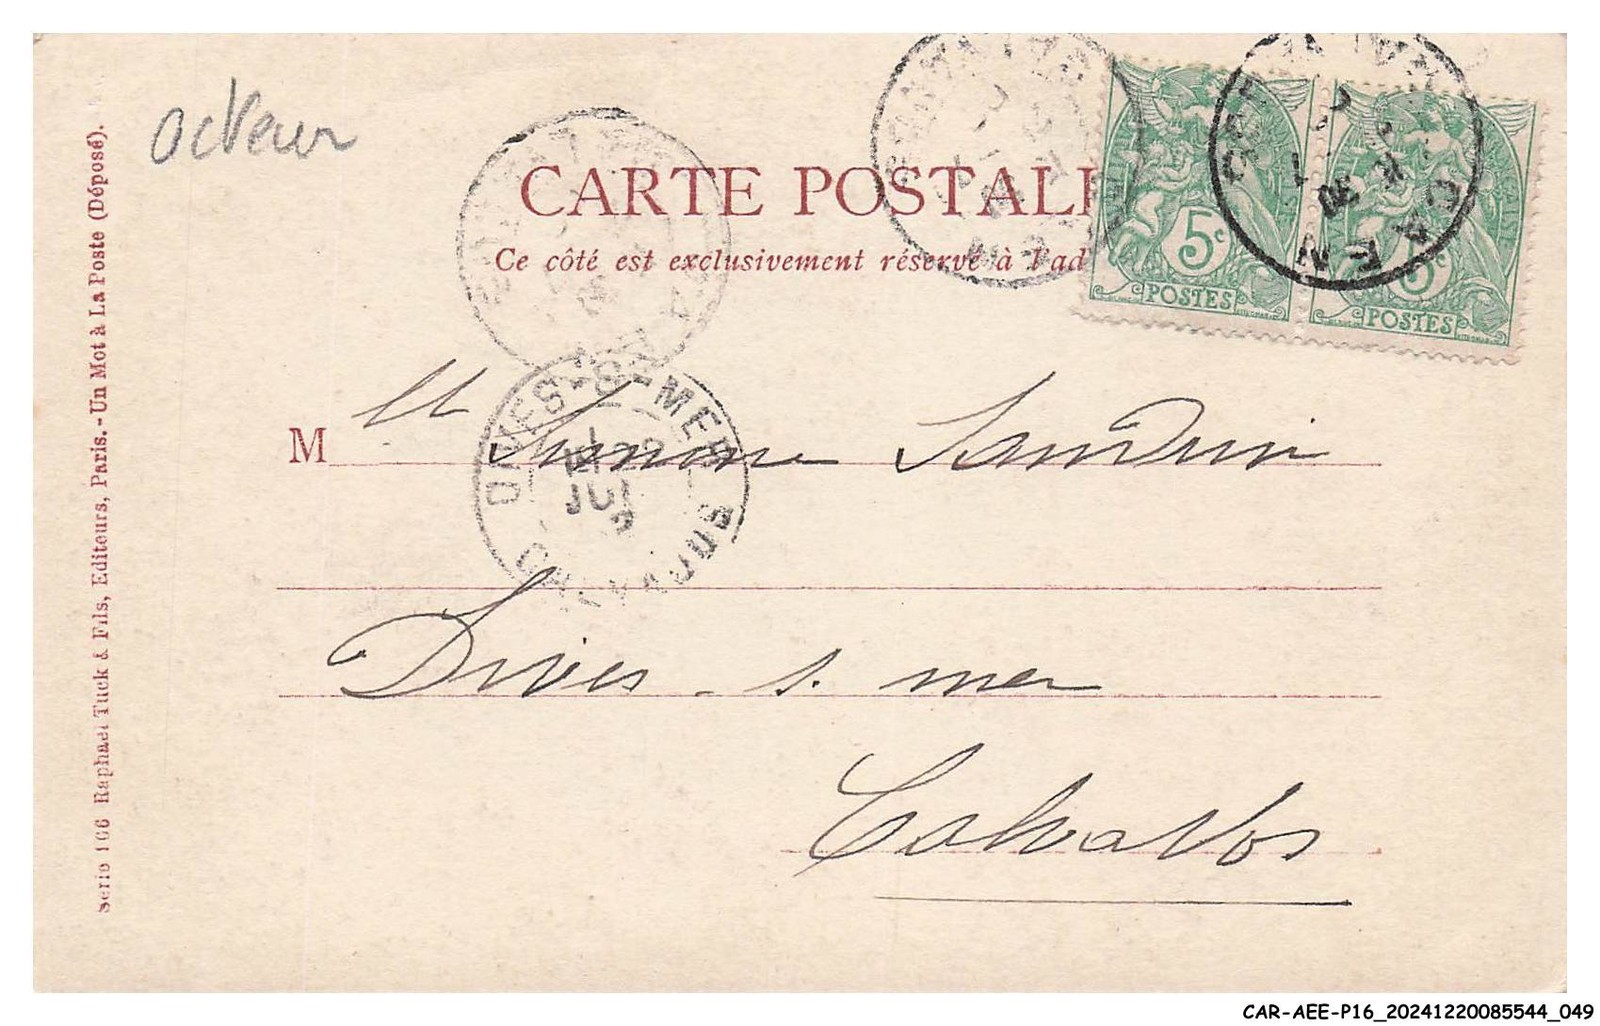 acteur
CARTE POSTALE
Ce côté est exclusivement réservé à l'ad
5c
POSTES
5c
POSTES
CAEN
DIVES-S-MER
JUI
CALVADOS
Mlle Simonne Sandrin
Dives - s. mer
Calvados
Serie 166 Raphael Tuck & Fils, Editeurs, Paris.- Un Mot à La Poste (Déposé).
CAR-AEE-P16_20241220085544_049